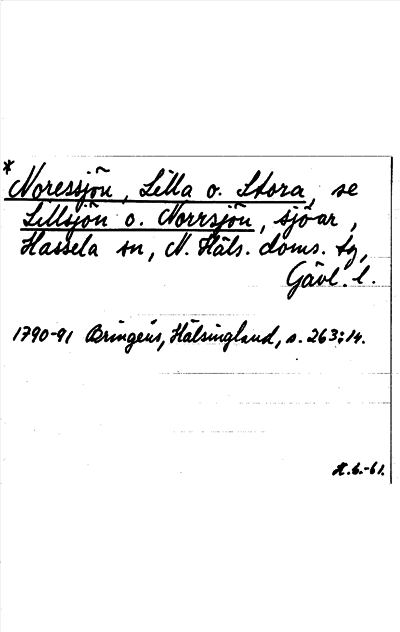 * Noressjön, Lilla o. Stora, se
Lillsjön o. Norrsjön, sjöar,
Hassela sn, N. Häls. doms. tg,
Gävl. l.
1790-91 Bringéus, Hälsingland, s. 263:14.
H.G.-61.